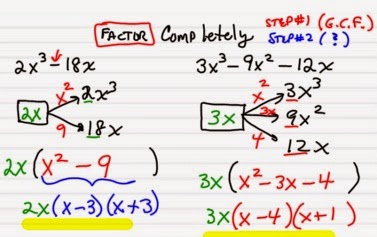 FACTOR Completely STEP#1 (G.C.F.)
STEP#2 (?)
2x³ - 18x
x² 2x³
2x
9 18x
2x(x² - 9)
2x(x-3)(x+3)
3x³ - 9x² - 12x
x² 3x³
3x 3x 9x²
4 12x
3x(x² - 3x - 4)
3x(x-4)(x+1)